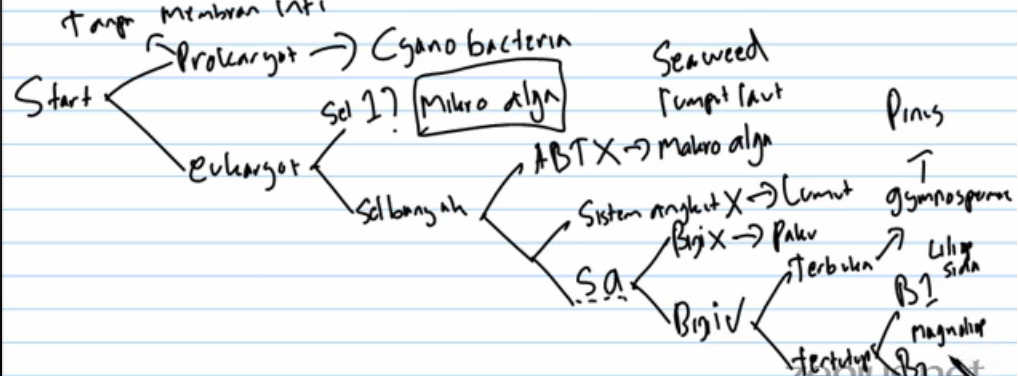 Tanpa Membran Inti
Prokaryot → Cyanobacteria
Start
Seaweed
rumput laut
Sel 1? Mikro alga
Pinus
ABT X → Makro alga
Eukaryot
↑
Sel banyak
gymnosperma
Sistem angkut X → Lumut
Biji X → Paku
Terbuka
Liliop
sida
SA
B1
Biji √
Magnoliop
tertutup
B2